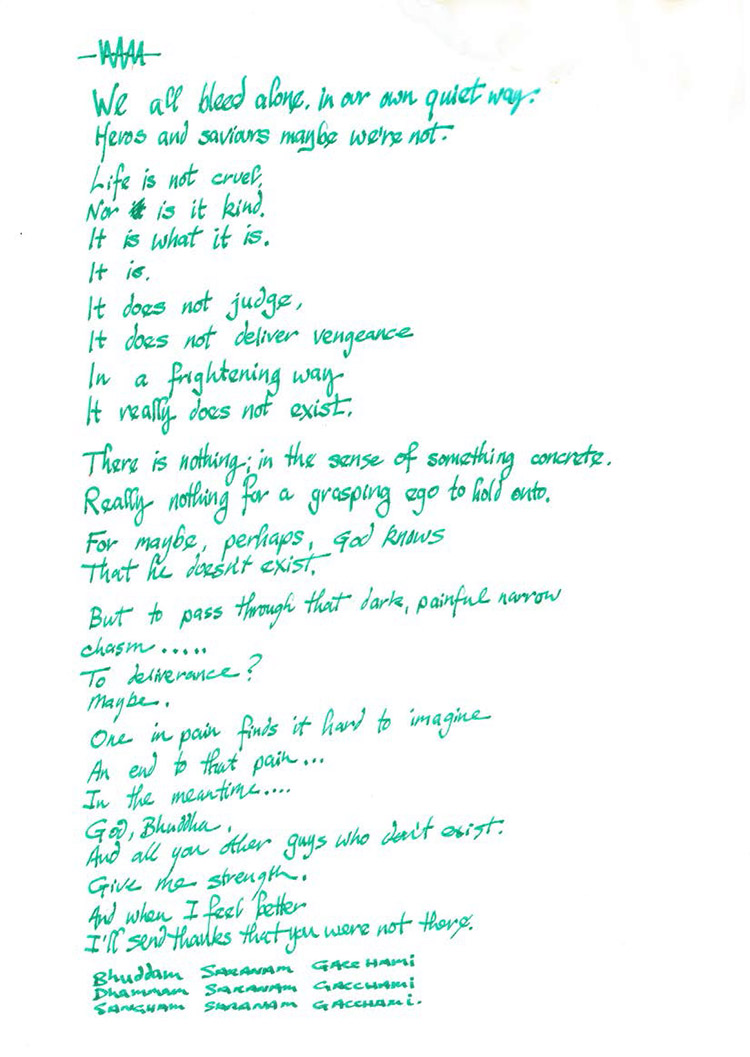 We all bleed alone, in our own quiet way.
Heros and saviours maybe we're not.
Life is not cruel,
Nor is it kind.
It is what it is.
It is.
It does not judge,
It does not deliver vengeance
In a frightening way
It really does not exist.
There is nothing; in the sense of something concrete.
Really nothing for a grasping ego to hold onto.
For maybe, perhaps, God knows
That he doesn't exist.
But to pass through that dark, painful narrow
chasm.....
To deliverance?
Maybe.
One in pain finds it hard to imagine
An end to that pain...
In the meantime....
God, Bhuddha,
And all you other guys who don't exist.
Give me strength.
And when I feel better
I'll send thanks that you were not there.
Bhuddam SARANAM GACCHAMi
DHAMMAM SARANAM GACCHAMi
SANGHAM SARANAM GACCHAMi.